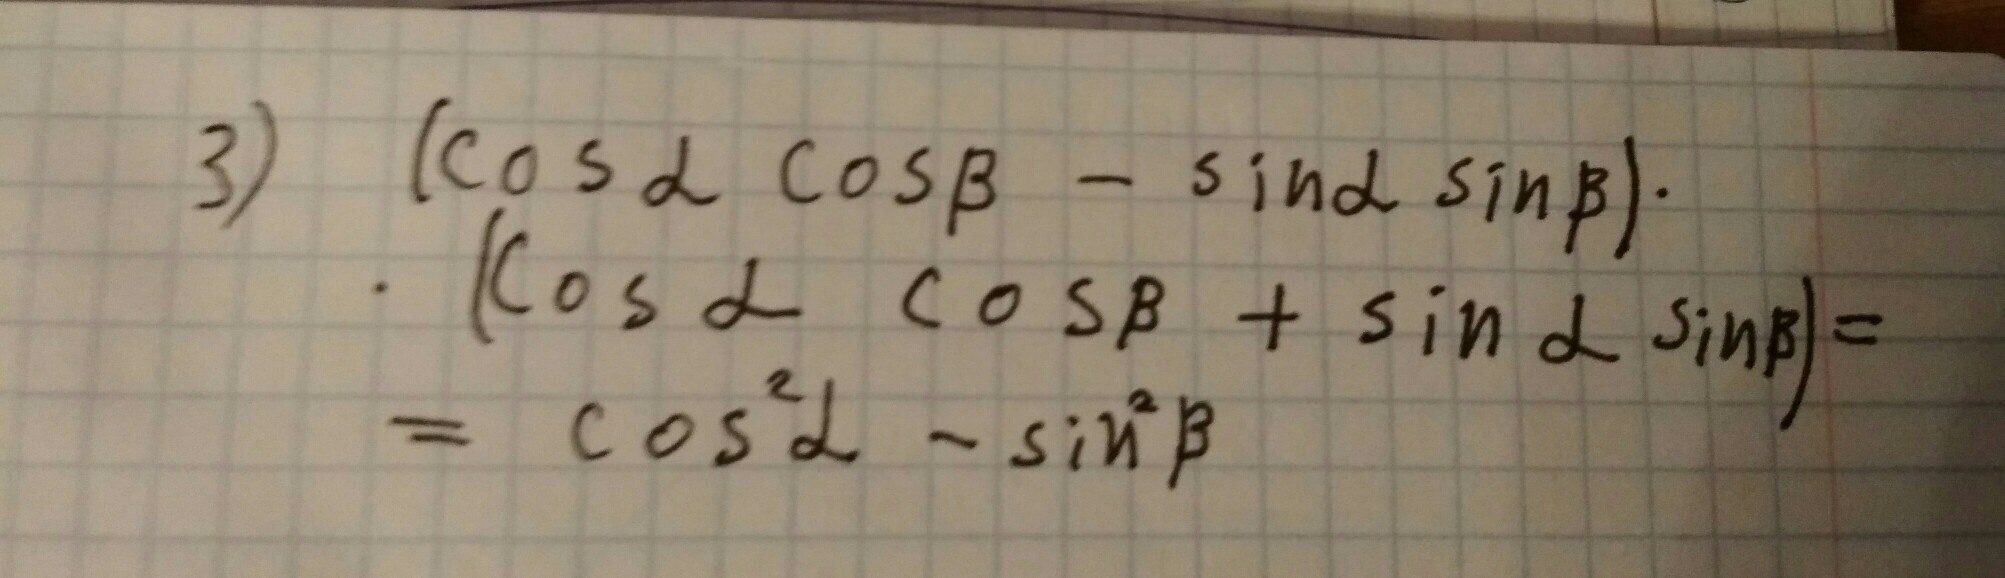 3) (cos α cos β - sin α sin β)·
· (cos α cos β + sin α sin β) =
= cos² α - sin² β